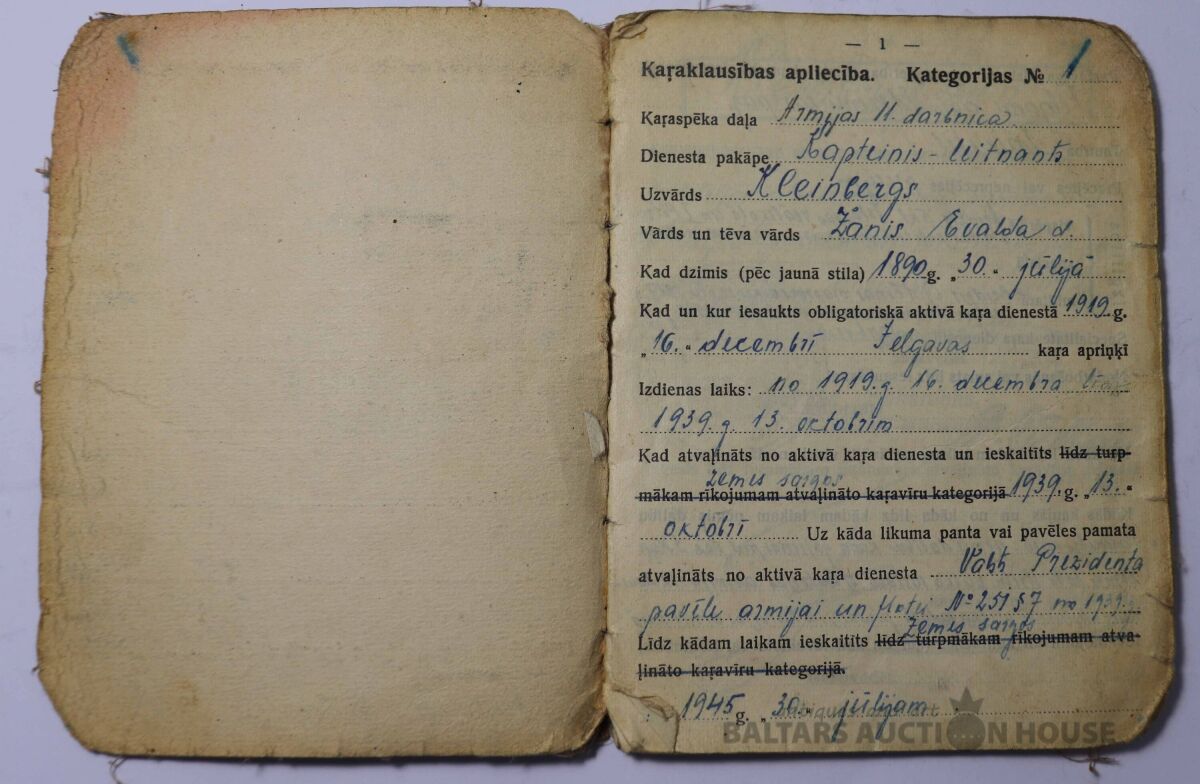 — 1 —
Kaŗaklausības apliecība. Kategorijas № 1
Kaŗaspēka daļa Armijas II. darbnīca
Dienesta pakāpe Kapteinis-leitnants
Uzvārds Kleinbergs
Vārds un tēva vārds Žanis Evalda d.
Kad dzimis (pēc jaunā stila) 1890 g. „30.“ jūlijā
Kad un kur iesaukts obligatoriskā aktivā kaŗa dienestā 1919 g.
„16.“ decembrī Jelgavas kaŗa apriņķī
Izdienas laiks: no 1919.g. 16. decembra līdz
1939.g. 13. oktobrim
Kad atvaļināts no aktivā kaŗa dienesta un ieskaitīts līdz turp-
zemes sargos
mākam rīkojumam atvaļināto kaŗavīru kategorijā 1939. g. „13.“
oktobrī Uz kāda likuma panta vai pavēles pamata
atvaļināts no aktivā kaŗa dienesta Valsts Prezidenta
pavēle armijai un flotei №251 §7 no 1939.g.
Zemes sargos
Līdz kādam laikam ieskaitīts līdz turpmākam rīkojumam atva-
ļināto kaŗavīru kategorijā.
1945 g. „30.“ jūlijam
BALTARS AUCTION HOUSE